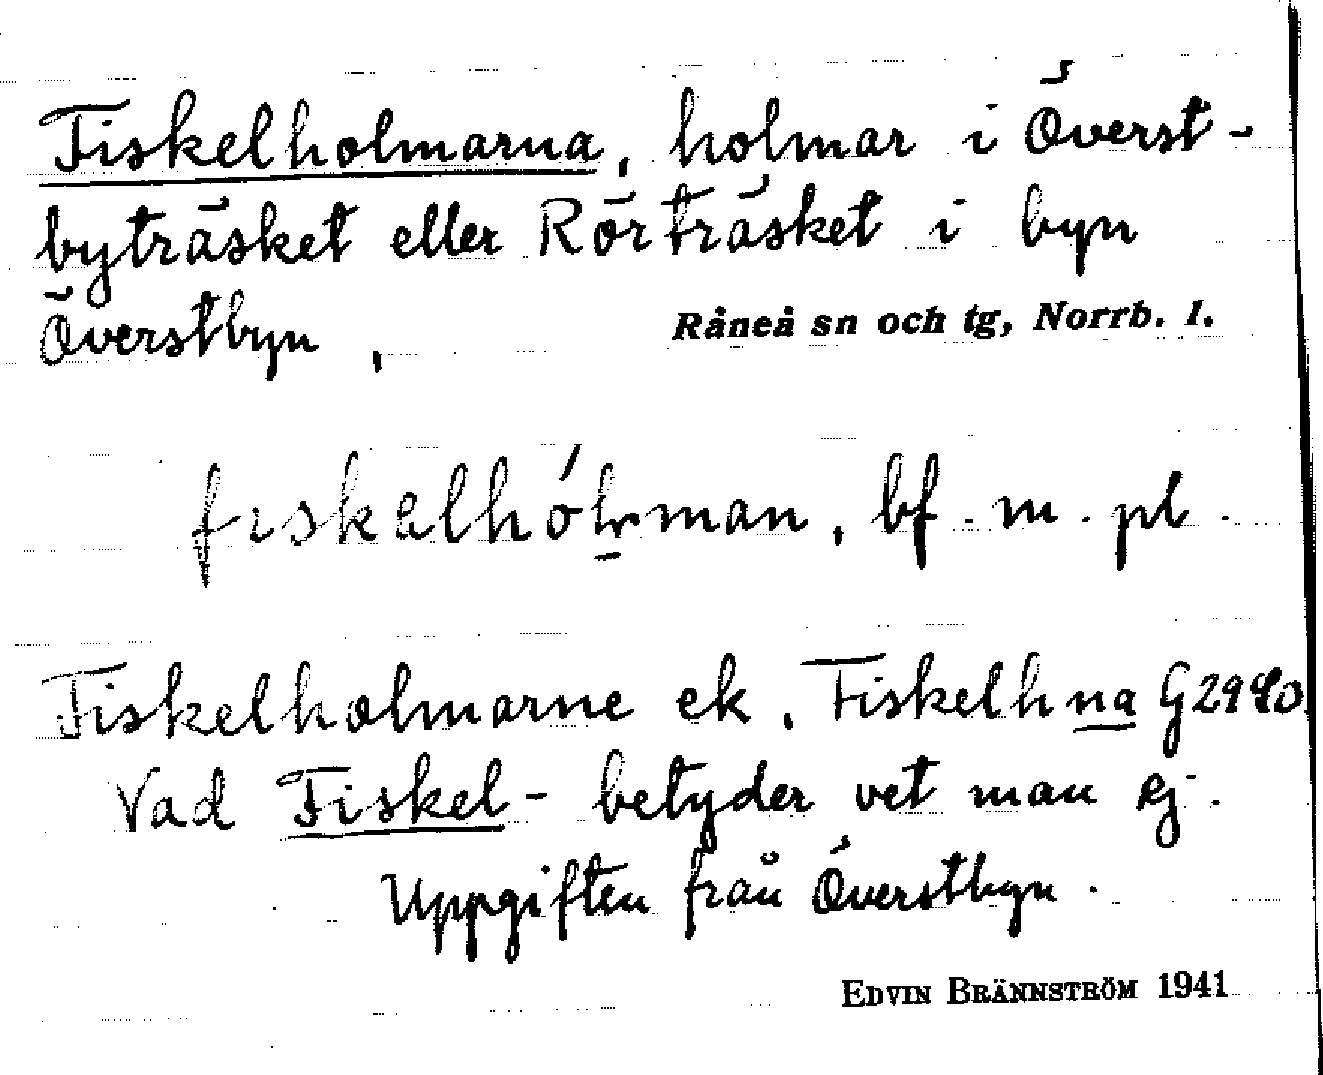 Fiskelholmarna, holmar i Överst-
byträsket eller Rörträsket i byn
Överstbyn,
Råneå sn och tg, Norrb. l.
fiskəlhóļman, bf. m. pl.
Fiskelholmarne ek, Fiskelhna G2940
Vad Fiskel- betyder vet man ej.
Uppgiften från Överstbyn.
EDVIN BRÄNNSTRÖM 1941